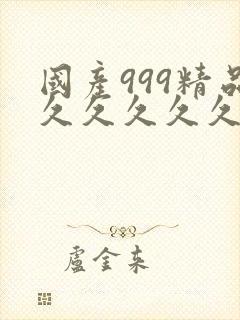 國產999精品
久久久久久
盧金來